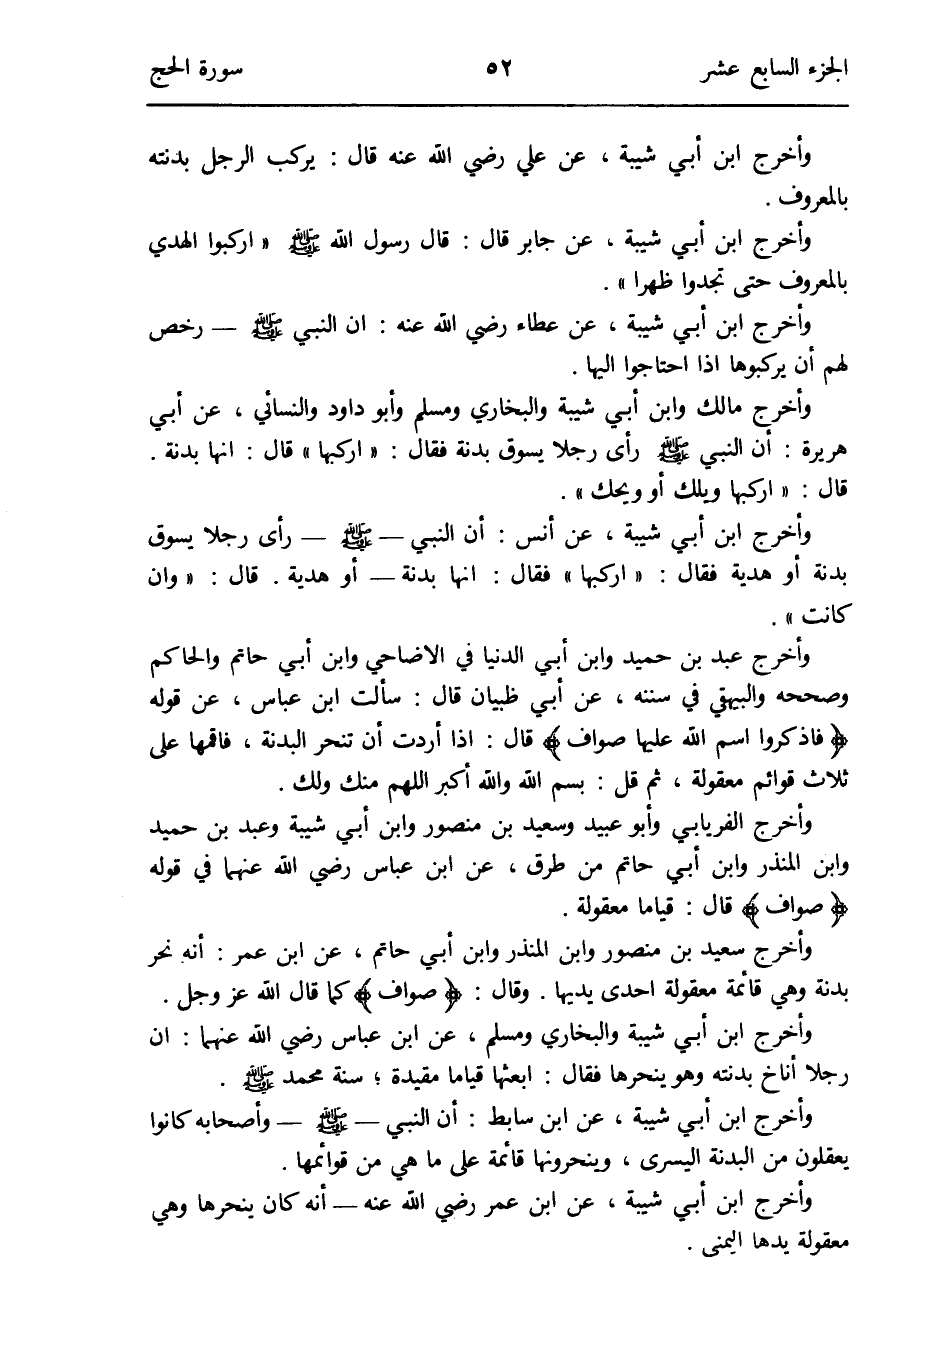 الجزء السابع عشر ٥٢ سورة الحج
وأخرج ابن أبي شيبة ، عن علي رضي الله عنه قال : يركب الرجل بدنته
بالمعروف .
وأخرج ابن أبي شيبة ، عن جابر قال : قال رسول الله ﷺ « اركبوا الهدي
بالمعروف حتى تجدوا ظهرا » .
وأخرج ابن أبي شيبة ، عن عطاء رضي الله عنه : ان النبي ﷺ — رخص
لهم أن يركبوها اذا احتاجوا اليها .
وأخرج مالك وابن أبي شيبة والبخاري ومسلم وأبو داود والنسائي ، عن أبي
هريرة : أن النبي ﷺ رأى رجلا يسوق بدنة فقال : « اركبها » قال : انها بدنة .
قال : « اركبها ويلك أو ويحك » .
وأخرج ابن أبي شيبة ، عن أنس : أن النبي — ﷺ — رأى رجلا يسوق
بدنة أو هدية فقال : « اركبها » فقال : انها بدنة — أو هدية . قال : « وان
كانت » .
وأخرج عبد بن حميد وابن أبي الدنيا في الاضاحي وابن أبي حاتم والحاكم
وصححه والبيهقي في سننه ، عن أبي ظبيان قال : سألت ابن عباس ، عن قوله
﴿ فاذكروا اسم الله عليها صواف ﴾ قال : اذا أردت أن تنحر البدنة ، فاقمها على
ثلاث قوائم معقولة ، ثم قل : بسم الله والله أكبر اللهم منك ولك .
وأخرج الفريابي وأبو عبيد وسعيد بن منصور وابن أبي شيبة وعبد بن حميد
وابن المنذر وابن أبي حاتم من طرق ، عن ابن عباس رضي الله عنهما في قوله
﴿ صواف ﴾ قال : قياما معقولة .
وأخرج سعيد بن منصور وابن المنذر وابن أبي حاتم ، عن ابن عمر : أنه نحر
بدنة وهي قائمة معقولة احدى يديها . وقال : ﴿ صواف ﴾ كما قال الله عز وجل .
وأخرج ابن أبي شيبة والبخاري ومسلم ، عن ابن عباس رضي الله عنهما : ان
رجلا أناخ بدنته وهو ينحرها فقال : ابعثها قياما مقيدة ؛ سنة محمد ﷺ .
وأخرج ابن أبي شيبة ، عن ابن سابط : أن النبي — ﷺ — وأصحابه كانوا
يعقلون من البدنة اليسرى ، وينحرونها قائمة على ما هي من قوائمها .
وأخرج ابن أبي شيبة ، عن ابن عمر رضي الله عنه — أنه كان ينحرها وهي
معقولة يدها اليمنى .